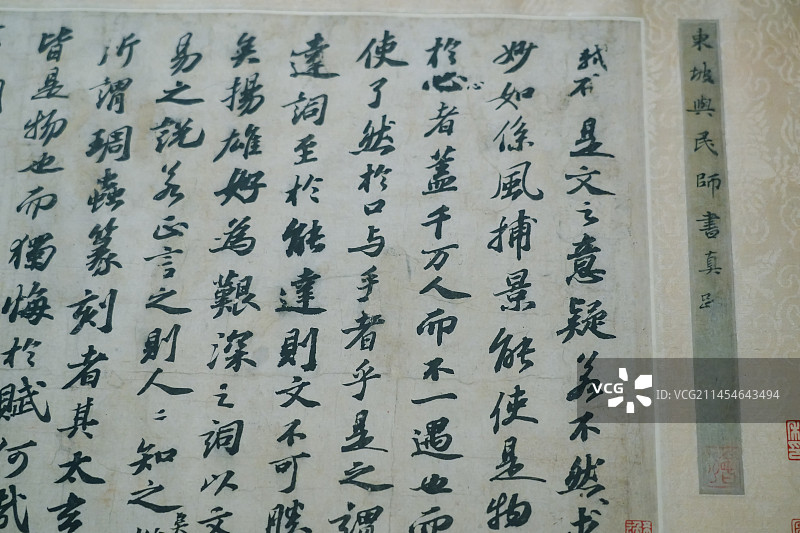 東坡與民師書真
是文之意疑若不然求
妙如係風捕景能使是物
於心者蓋千万人而不一遇也而
使了然於口与手者乎是之謂
達詞至於能達則文不可勝
矣揚雄好為艱深之詞以文
易之說若正言之則人〻知之
所謂琱蟲篆刻者其太玄
皆是物也而獨悔於賦何哉
VCG 视觉中国
VCG211454643494